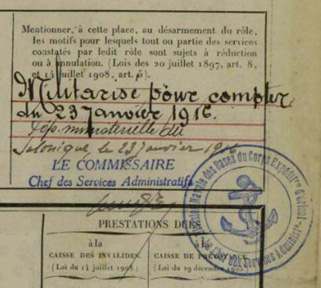 Mentionner, à cette place, au désarmement du rôle,
les motifs pour lesquels tout ou partie des services
constatés par ledit rôle sont sujets à réduction
ou à annulation. (Lois des 20 juillet 1897, art. 8,
et 14 juillet 1908, art. 6).
Militarisé pour compter
du 23 Janvier 1916.
Dép. ministérielle du
Salonique, le 23 janvier 1916
LE COMMISSAIRE
Chef des Services Administratifs
PRESTATIONS DUES
à la
CAISSE DES INVALIDES.
(Loi du 14 juillet 1908.)
à la
CAISSE DE PRÉVOYANCE
(Loi du 29 décembre
des Bases du Corps Expédit. d'Orient
des Services Administ.